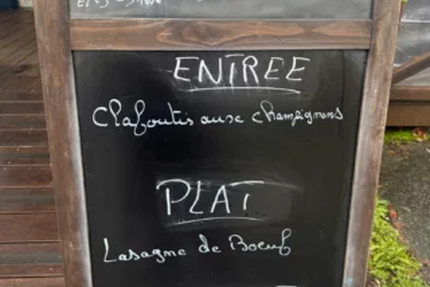 ENTREE
Clafoutis aux champignons
PLAT
Lasagne de Boeuf